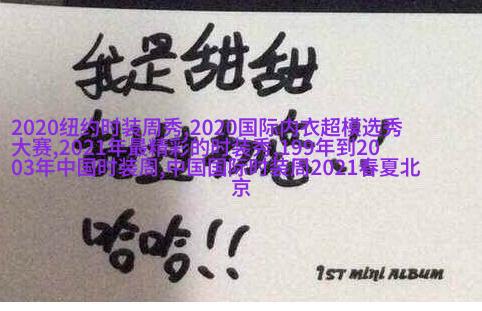 我是甜甜
2020纽约时装周秀,2020国际内衣超模选秀
大赛,2021年最精彩的时装秀,199年到20
03年中国时装周,中国国际时装周2021春夏北
京
哈哈!!
1ST MINI ALBUM